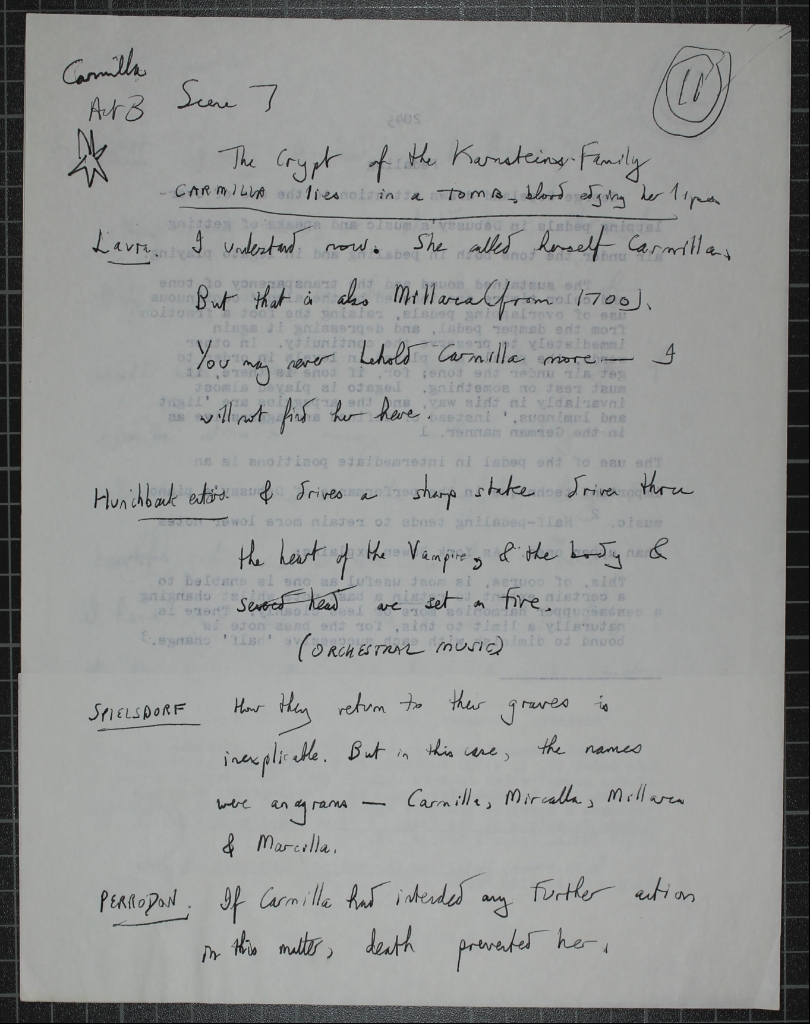 Carmilla
Act 3 Scene 7
10
The Crypt of the Karnsteins Family
CARMILLA lies in a TOMB, blood edging her lips
Laura. I understand now. She called herself Carmilla,
But that is also Millarca (from 1700).
You may never behold Carmilla more — I
will not find her here.
Hunchback enters & drives a sharp stake driven thru
the heart of the Vampire, & the body &
severed head are set on fire.
(ORCHESTRAL MUSIC)
SPIELSDORF How they return to their graves is
inexplicable. But in this case, the names
were anagrams — Carmilla, Mircalla, Millarca
& Marcilla.
PERRODON. If Carmilla had intended any further action
in this matter, death prevented her.